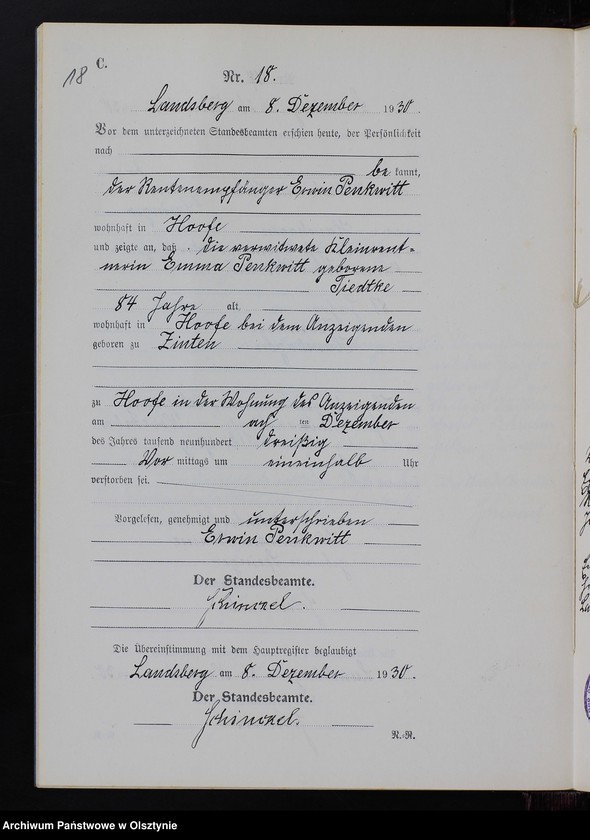 18
C.
Nr. 18.
Landsberg am 8. Dezember 1930
Vor dem unterzeichneten Standesbeamten erschien heute, der Persönlichkeit
nach
be kannt,
der Rentenempfänger Erwin Penkwitt
wohnhaft in Hoofe
und zeigte an, daß die verwitwete Kleinrent-
nerin Emma Penkwitt geborene
Tiedtke
84 Jahre alt
wohnhaft in Hoofe bei dem Anzeigenden
geboren zu Zinten
zu Hoofe in der Wohnung des Anzeigenden
am acht ten Dezember
des Jahres tausend neunhundert dreißig
Vor mittags um eineinhalb Uhr
verstorben sei.
Vorgelesen, genehmigt und unterschrieben
Erwin Penkwitt
Der Standesbeamte.
Schinczel.
Die Übereinstimmung mit dem Hauptregister beglaubigt
Landsberg am 8. Dezember 1930.
Der Standesbeamte.
Schinczel.
R.R.
Archiwum Państwowe w Olsztynie